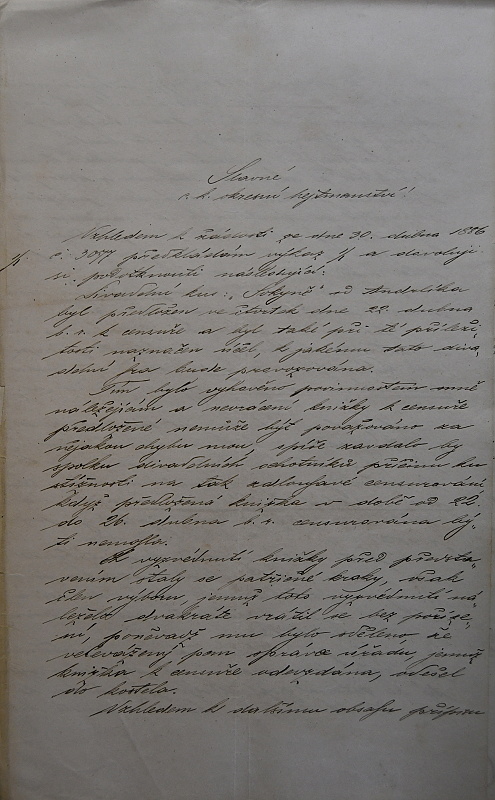 Slavné
c. k. okresní hejtmanství!
Vzhledem k žádosti ze dne 30. dubna 1886
č. 3077 předkládám výkaz ·/. a dovoluji
·/.
si podotknouti následující:
Divadelní kus: „
byl předložen ve čtvrtek dne 22. dubna
t. r. k censuře a byl také při té příleži-
tosti naznačen účel, k jakému tato diva-
delní hra bude provozována.
Tím bylo vyhověno povinnostem mně
náležejícím a nevrácení knížky k censuře
předložené nemůže býti považováno za
nějakou chybu mou, spíše zavdalo by
spolku divadelních ochotníků příčinu ku
stížnosti na tak zdlouhavé censurování
když předložená knížka v době od 22.
do 26. dubna t. r. censurována bý-
ti nemohla.
K vyzvednutí knížky před předsta-
vením staly se patřičné kroky, však
člen výboru, jemuž toto vyzvednutí ná-
leželo dvakráte vrátil se bez poříze-
ní, poněvadž mu bylo sděleno že
velevážený pan správce úřadu, jemuž
knížka k censuře odevzdána, odešel
do kostela.
Vzhledem ku dalšímu obsahu přípisu